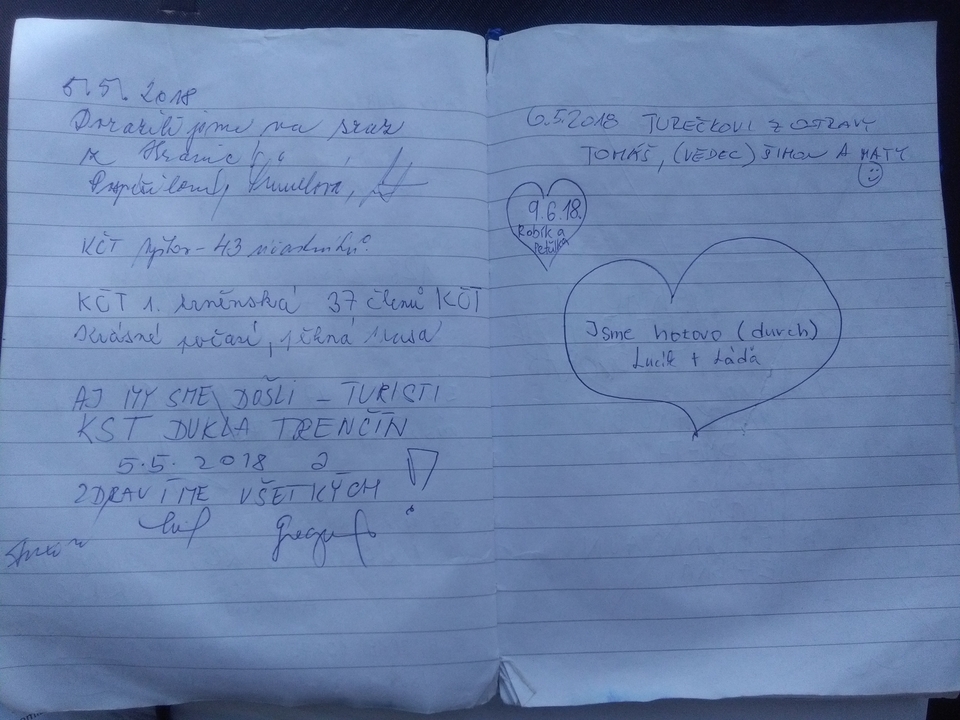 5.5. 2018
Dorazili jsme na sraz
z Hranic
KČT 43 účastníků
KČT 1. brněnská 37 členů KČT
Krásné počasí, pěkná trasa
AJ MY SME DOŠLI – TURISTI
KST DUKLA TRENČÍN
5.5. 2018 a
ZDRAVÍME VŠETKÝCH !
6.5.2018 TUREČKOVI Z OSTRAVY
TOMÁŠ, (VĚDEC) ŠIMON A MATY
9.6.18.
Robík a
Peťulka
Jsme hotovo (durch)
Lucík + Láďa